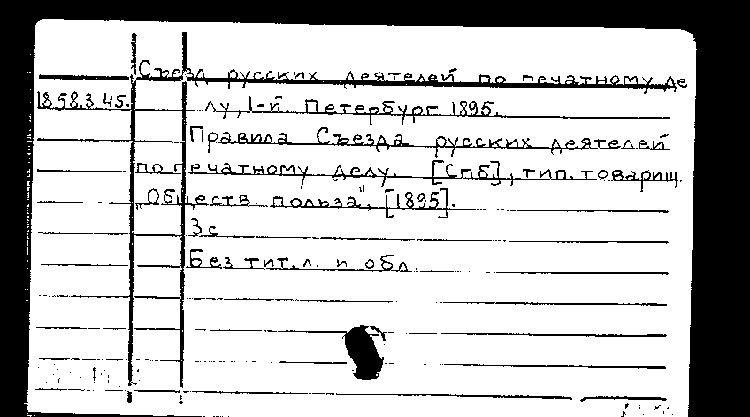 Съезд русских деятелей по печатному де
18.58.3.45. лу, 1-й. Петербург 1895.
Правила Съезда русских деятелей
по печатному делу. [Спб], тип. товарищ.
„Обществ польза", [1895].
3 с
Без тит. л. и обл.